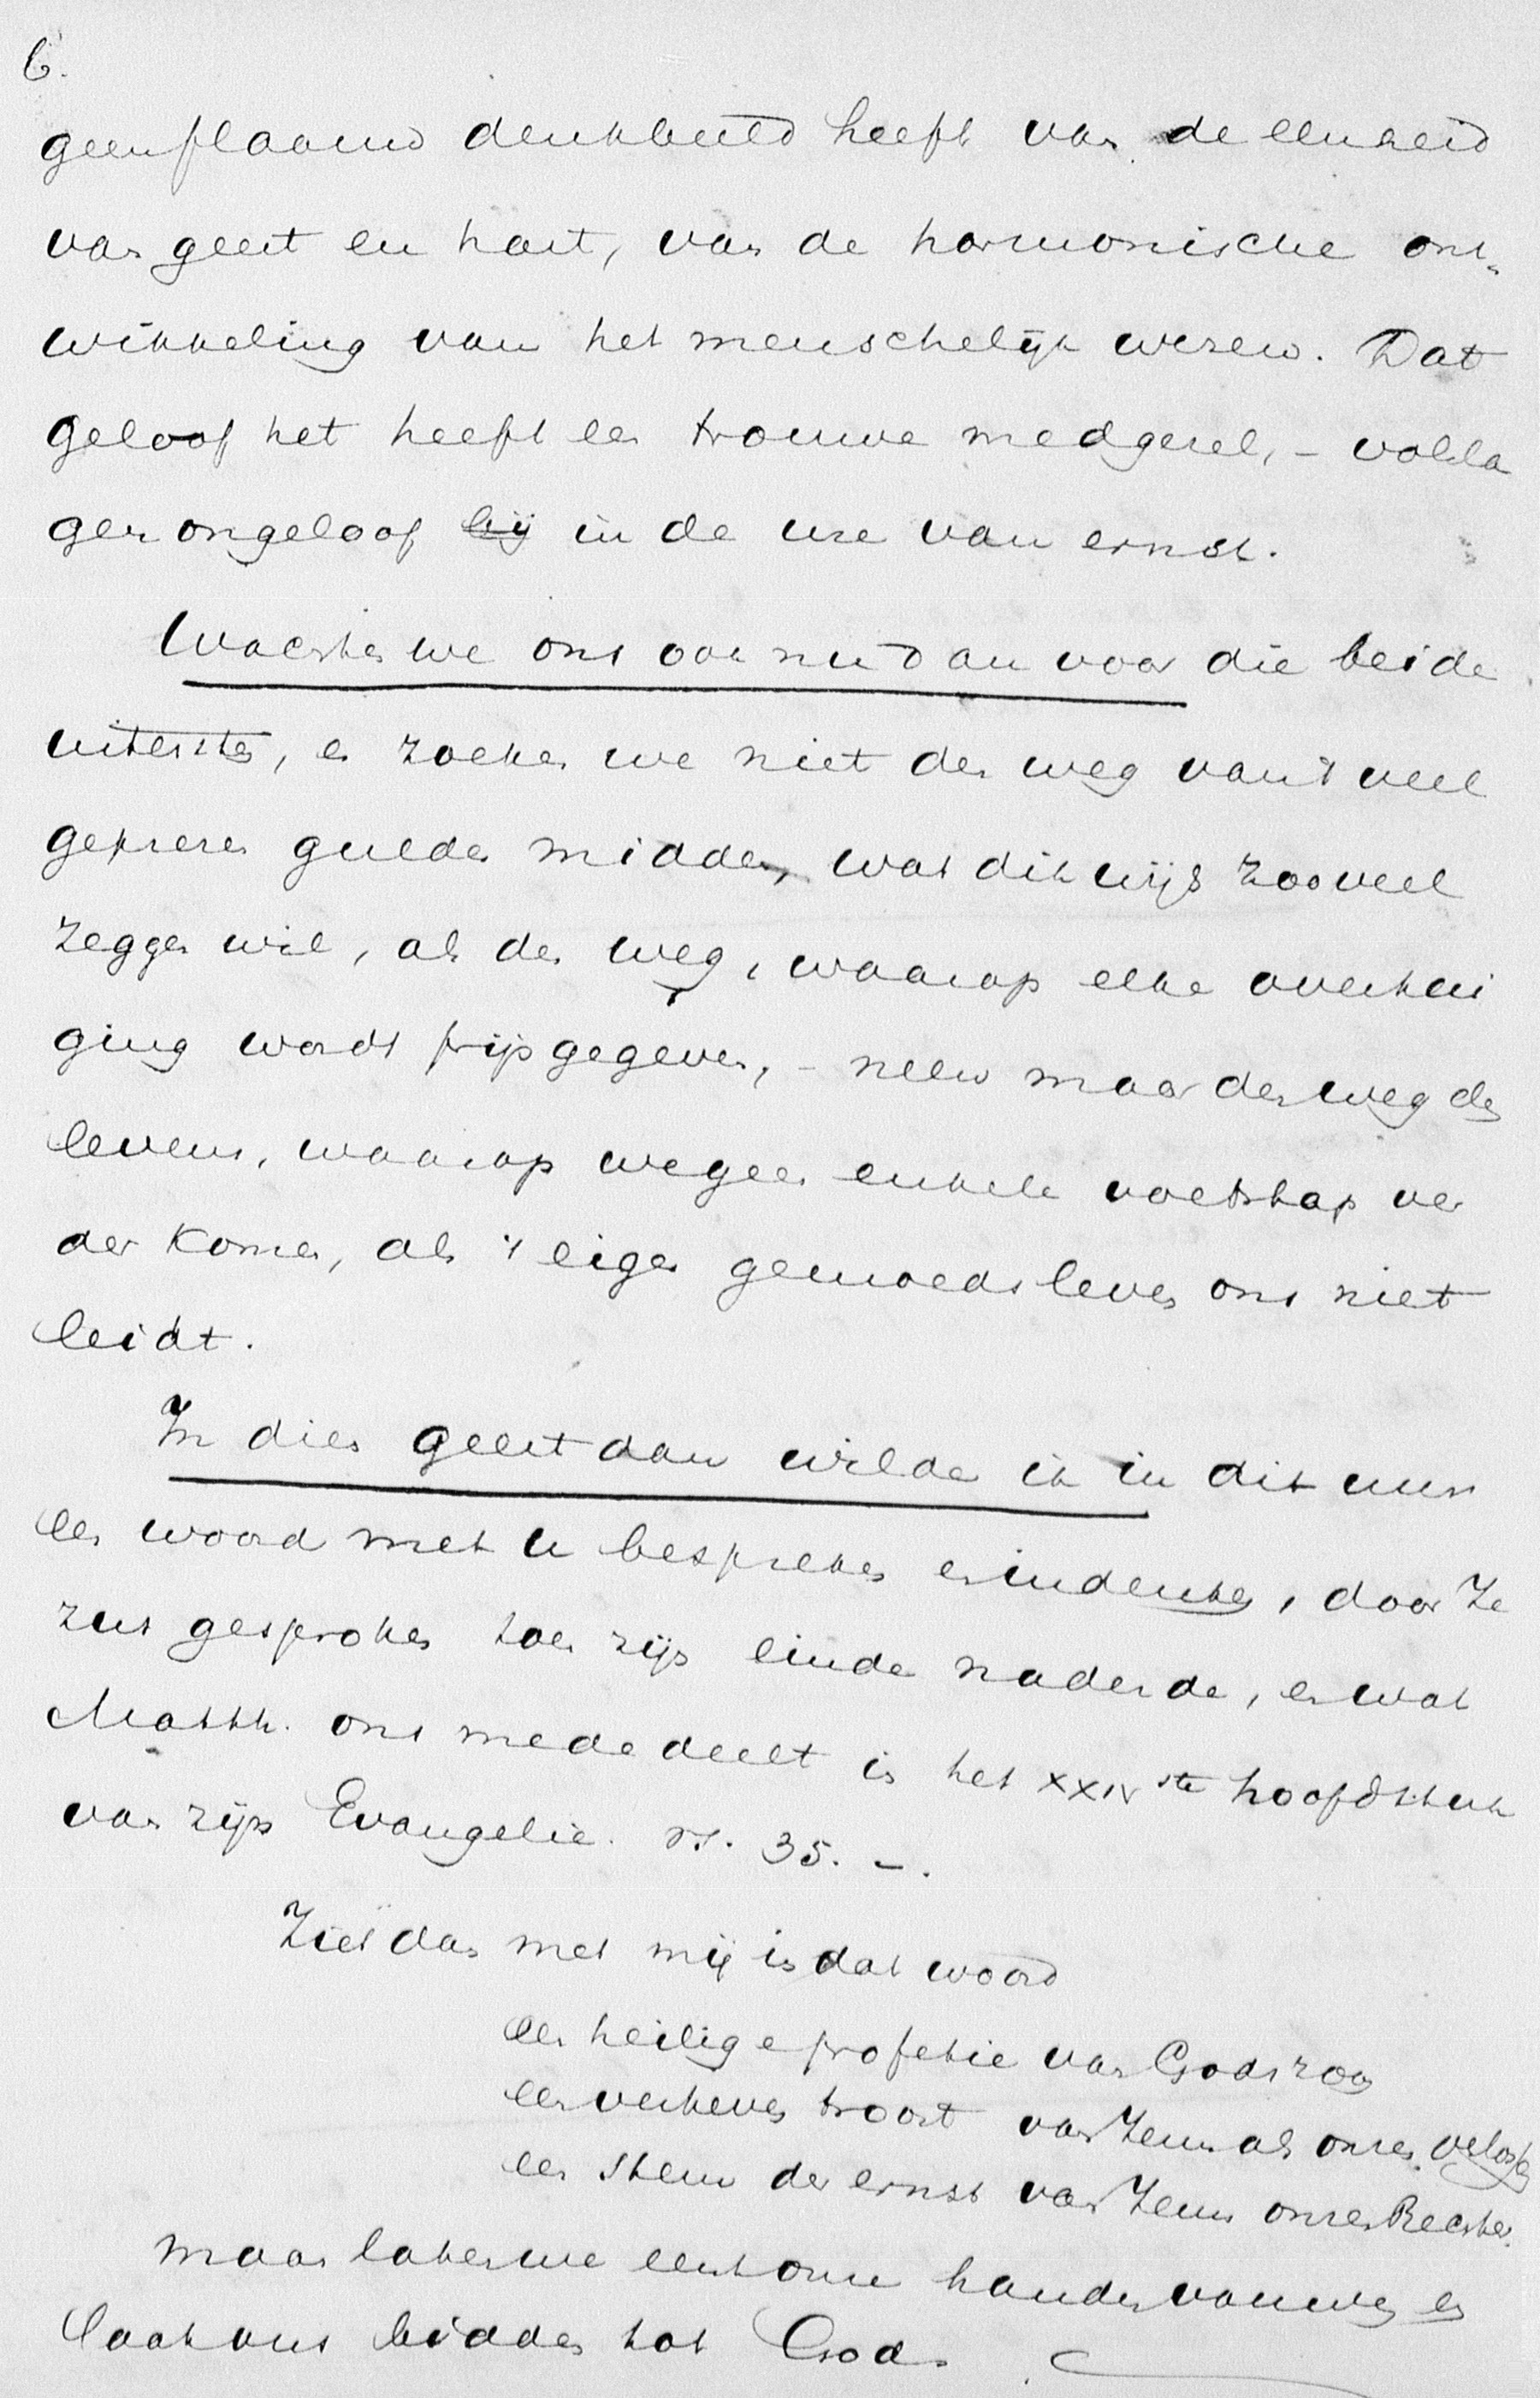 6.
geen flaauw denkbeeld heeft van de eenheid
van geest en hart, van de harmonische ont-
wikkeling van het menschelijk wezen. Dat
geloof het heeft een trouwe medgezel, – volsla
gen ongeloof bij in de ure van ernst.
Wachten we ons ook nu dan voor die beide
uitersten, en zoeken we niet den weg van 't veel
geprezen gulden midden, wat dikwijls zooveel
zeggen wil, als den weg, waarop elke overtui
ging wordt prijs gegeven, – neen maar den weg des
levens, waarop we geen enkele voetstap ver
der komen, als 't eigen gemoedsleven ons niet
leidt.
In dien geest dan wilde ik in dit uur
een woord met u bespreken en indenken, door Je
zus gesproken toen zijn einde naderde, en wat
Matth. ons mededeelt in het XXIVste hoofdstuk
van zijn Evangelie. vs. 35. –.
Ziet dan met mij in dat woord
een heilige profetie van Gods zoon
een verheven troost van Jezus als onzen Verlosser
een stem der ernst van Jezus onzen Rechter.
Maar laten we eerst onze handen vouwen en
laat ons bidden tot God.